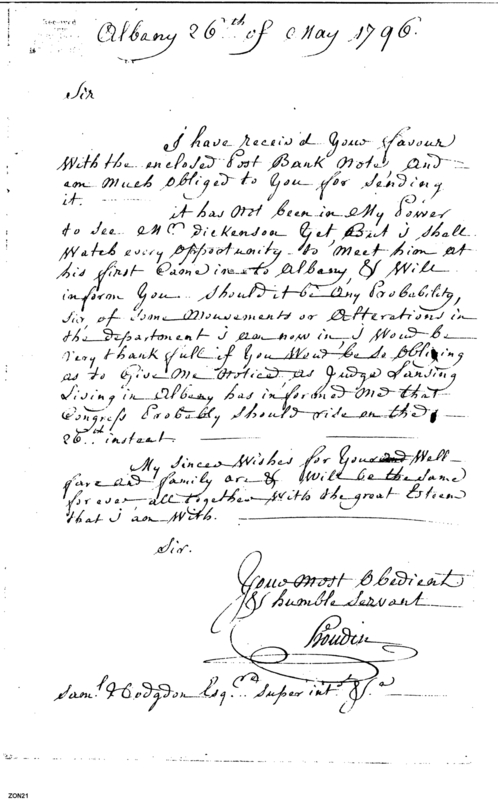 Albany 26th of May 1796.
Sir
I have receiv'd Your favour
With the enclosed Post Bank Note, and
am Much obliged to You for sending
it.
it has Not been in My Power
to see Mr. Dickenson Yet But i shall
Watch every opportunity to Meet him at
his first Came in to Albany & Will
inform You. Should it be Any Probability,
Sir, of some Mouvements or Alterations in
the department i am now in, i Woud be
Very thank full if You Woud be so Obliging
as to Give Me Notice, as Judge Lansing
Living in Albany has informed Med that
Congress Probably should rise on the
26th instant.
My Sincer Wishes for Your and Well-
fare and family are & Will be the same
for ever all together With the great Esteem
that i am With.
Sir.
Your Most Obedient
& humble Servant
Houdin
Saml. Hodgdon Esqre. Super intt. &a
ZON21